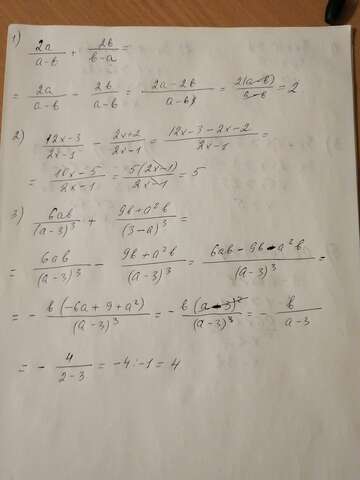 1) 2a/(a-b) + 2b/(b-a) =
= 2a/(a-b) - 2b/(a-b) = (2a-2b)/(a-b) = 2(a-b)/(a-b) = 2
2) (12x-3)/(2x-1) - (2x+2)/(2x-1) = (12x-3-2x-2)/(2x-1) =
= (10x-5)/(2x-1) = 5(2x-1)/(2x-1) = 5
3) 6ab/(a-3)³ + (9b+a²b)/(3-a)³ =
= 6ab/(a-3)³ - (9b+a²b)/(a-3)³ = (6ab-9b-a²b)/(a-3)³ =
= - b(-6a+9+a²)/(a-3)³ = - b(a-3)²/(a-3)³ = - b/(a-3)
= - 4/(2-3) = -4:-1 = 4